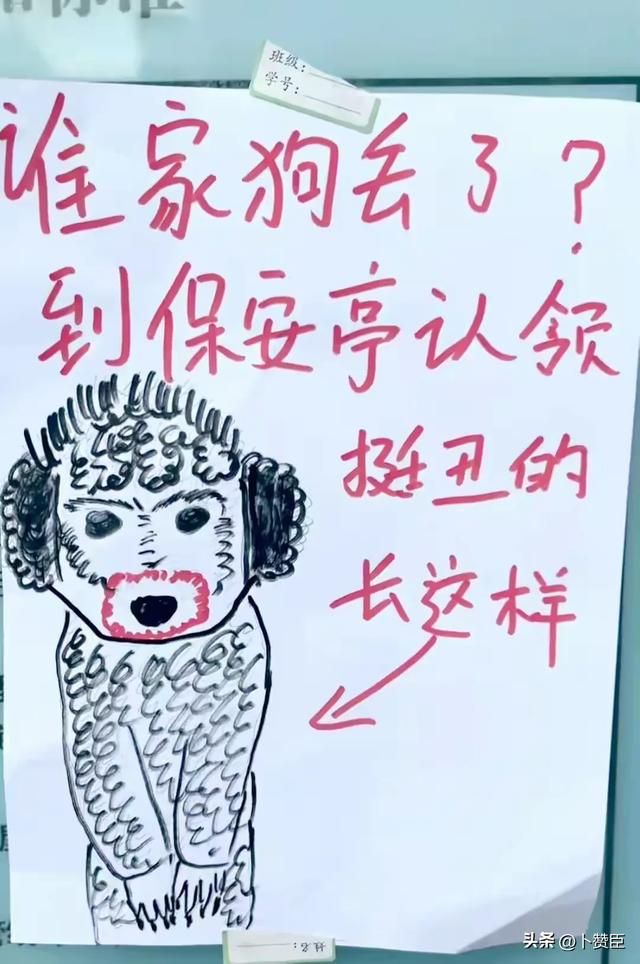 班级:
学号:
谁家狗丢了?
到保安亭认领
挺丑的
长这样
姓名:
头条 @卜赞臣